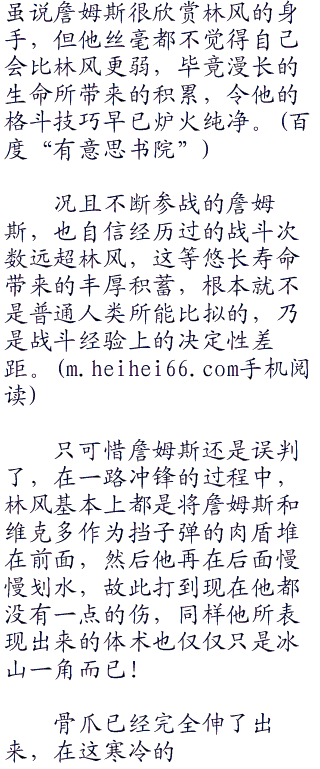 虽说詹姆斯很欣赏林风的身
手，但他丝毫都不觉得自己
会比林风更弱，毕竟漫长的
生命所带来的积累，令他的
格斗技巧早已炉火纯净。(百
度“有意思书院”)
况且不断参战的詹姆
斯，也自信经历过的战斗次
数远超林风，这等悠长寿命
带来的丰厚积蓄，根本就不
是普通人类所能比拟的，乃
是战斗经验上的决定性差
距。(m.heihei66.com手机阅
读)
只可惜詹姆斯还是误判
了，在一路冲锋的过程中，
林风基本上都是将詹姆斯和
维克多作为挡子弹的肉盾堆
在前面，然后他再在后面慢
慢划水，故此打到现在他都
没有一点的伤，同样他所表
现出来的体术也仅仅只是冰
山一角而已！
骨爪已经完全伸了出
来，在这寒冷的